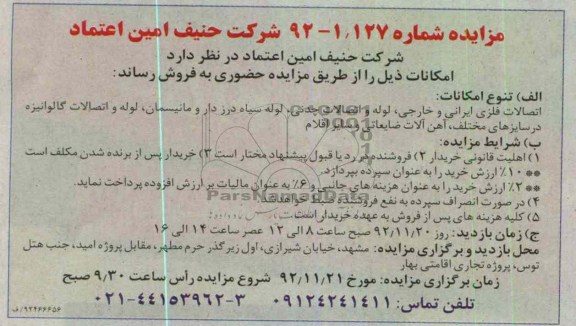 مزایده شماره ۱,۱۲۷-۹۲ شرکت حنیف امین اعتماد
شرکت حنیف امین اعتماد در نظر دارد
امکانات ذیل را از طریق مزایده حضوری به فروش رساند:
الف) تنوع امکانات:
اتصالات فلزی ایرانی و خارجی، لوله و اتصالات چدنی، لوله سیاه درز دار و مانیسمان، لوله و اتصالات گالوانیزه
در سایزهای مختلف، آهن آلات ضایعاتی و سایر اقلام
ب) شرایط مزایده:
۱) اهلیت قانونی خریدار ۲) فروشنده در رد یا قبول پیشنهاد مختار است ۳) خریدار پس از برنده شدن مکلف است
** ۱۰٪ ارزش خرید را به عنوان سپرده بپردازد.
** ۲٪ ارزش خرید را به عنوان هزینه های جانبی و ۶٪ به عنوان مالیات بر ارزش افزوده پرداخت نماید.
۴) در صورت انصراف سپرده به نفع فروشنده ضبط خواهد شد
۵) کلیه هزینه های پس از فروش به عهده خریدار است
ج) زمان بازدید: روز ۹۲/۱۱/۲۰ صبح ساعت ۸ الی ۱۲ عصر ساعت ۱۴ الی ۱۶
محل بازدید و برگزاری مزایده: مشهد، خیابان شیرازی، اول زیر گذر حرم مطهر، مقابل پروژه امید، جنب هتل
توس، پروژه تجاری اقامتی بهار
زمان برگزاری مزایده: مورخ ۹۲/۱۱/۲۱ شروع مزایده رأس ساعت ۹,۳۰ صبح
تلفن تماس: ۰۹۱۲۴۲۴۱۴۱۱ ۳-۰۲۱-۴۴۱۵۳۹۶۲
۹۲۴۶۶۶۵۶/ف
ParsNamadData